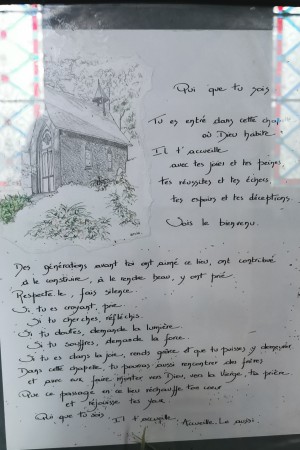 Qui que tu sois
Tu es entré dans cette chapelle
où Dieu habite.
Il t'accueille
avec tes joies et tes peines,
tes réussites et tes échecs,
tes espoirs et tes déceptions.
Sois le bienvenu.
Des générations avant toi ont aimé ce lieu, ont contribué
à le construire, à le rendre beau, y ont prié.
Respecte le, fais silence.
Si tu es croyant, prie.
Si tu cherches, réfléchis.
Si tu doutes, demande la lumière.
Si tu souffres, demande la force.
Si tu es dans la joie, rends grâce et que tu puisses y demeurer.
Dans cette chapelle, tu pourras aussi rencontrer des frères
et avec eux faire monter vers Dieu, vers la Vierge, ta prière.
Que ce passage en ce lieu réchauffe ton cœur
et réjouisse tes yeux.
Qui que tu sois. Il t'accueille. Accueille-Le aussi.